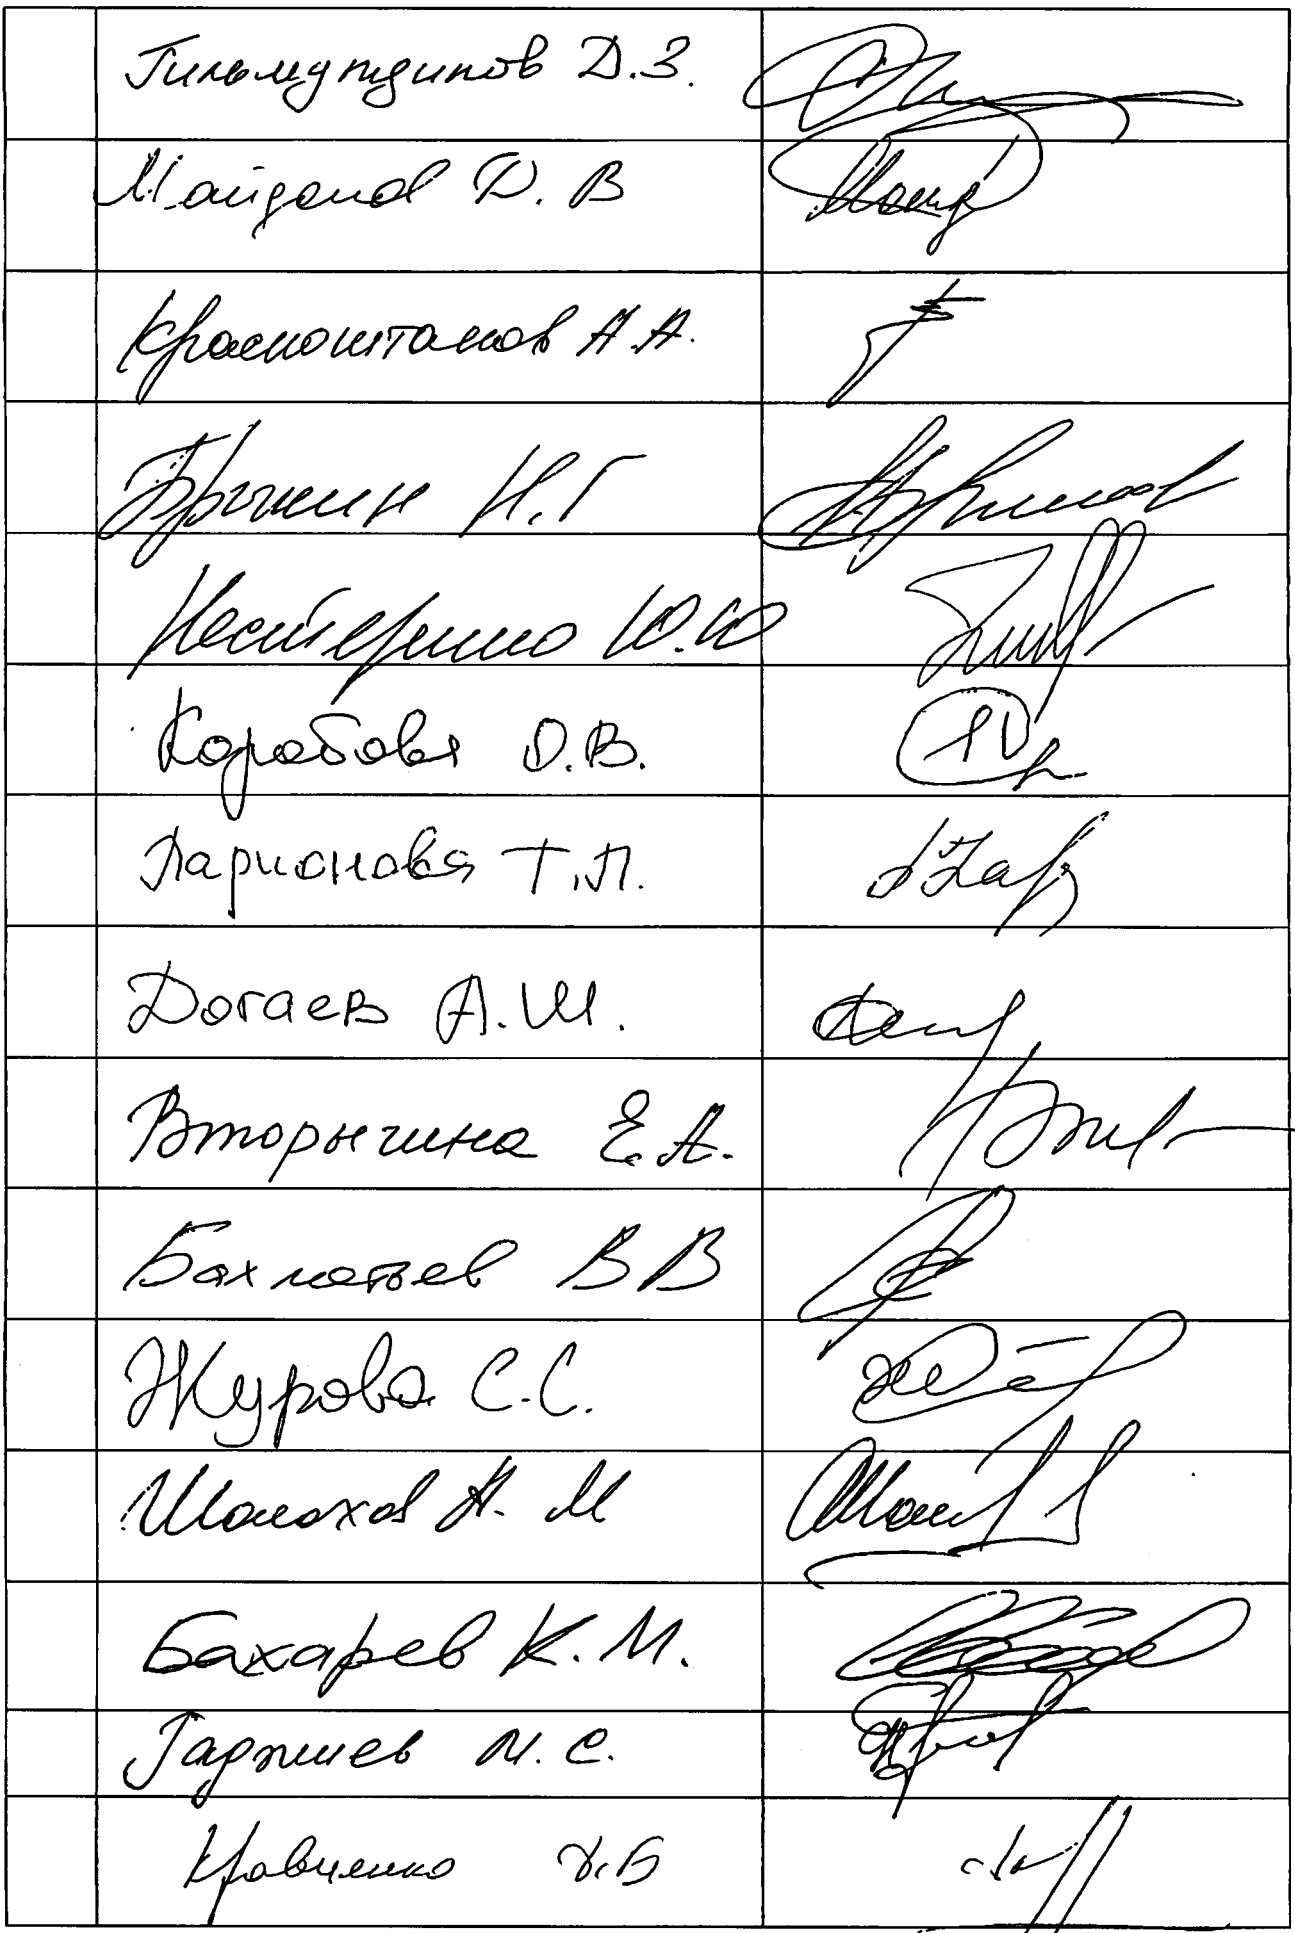 Гильмутдинов Д.З.
Майданов Д. В
Красноштанов А.А.
Брыкин Н.Г
Нестеренко Ю.Ю
Коробова О.В.
Ларионова Т.Л.
Догаев А.Ш.
Вторыгина Е.А.
Бахметьев В В
Журова С.С.
Шолохов А. М
Бахарев К.М.
Гаджиев М.С.
Кравченко Д.Б